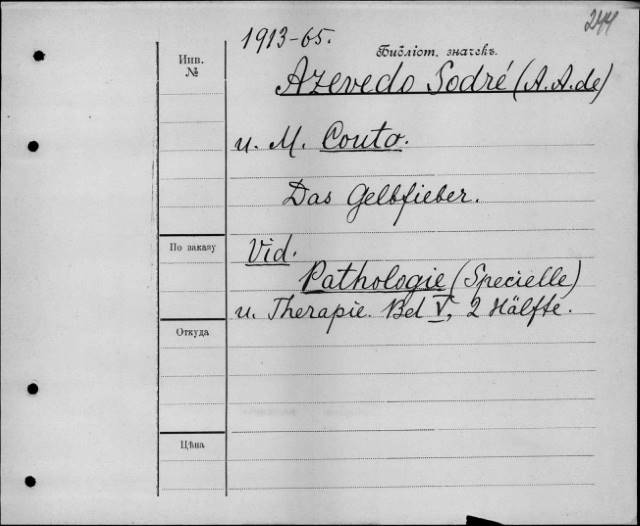 244
1913-65.
Библіот. значекъ.
Инв. №
Azevedo Sodré (A.A.de)
u. M. Couto.
Das Gelbfieber.
По заказу
Vid.
Pathologie (Specielle)
u. Therapie. Bd V, 2 Hälfte.
Откуда
Цѣна